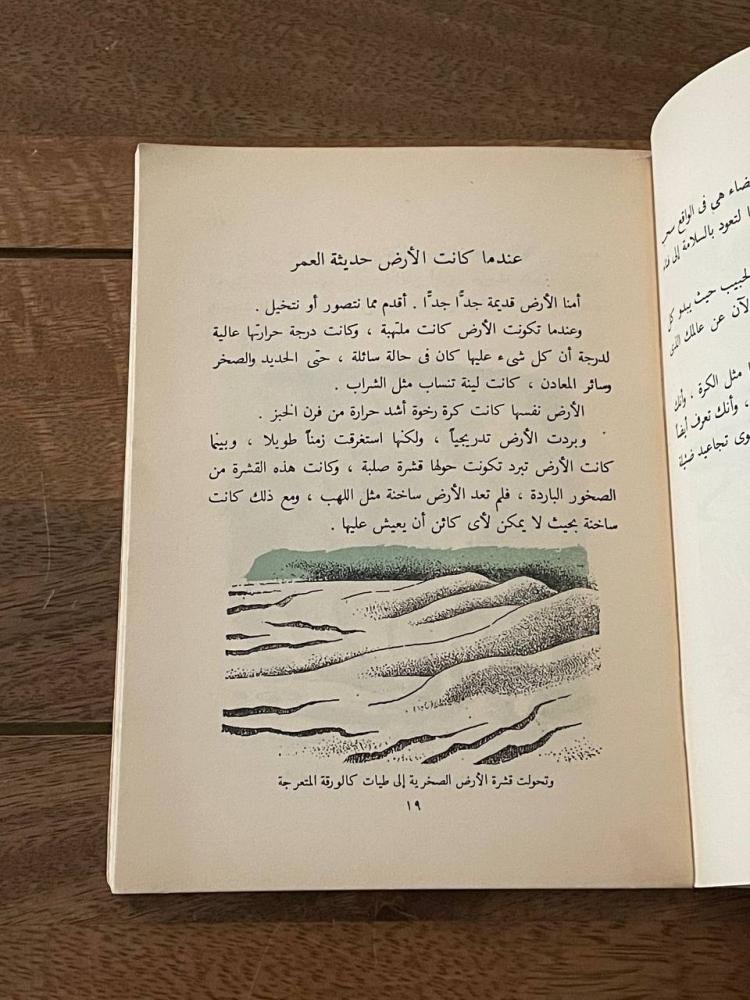 عندما كانت الأرض حديثة العمر
أمنا الأرض قديمة جدًّا جدًّا . أقدم مما نتصور أو نتخيل .
وعندما تكونت الأرض كانت ملتهبة ، وكانت درجة حرارتها عالية
لدرجة أن كل شىء عليها كان فى حالة سائلة ، حتى الحديد والصخر
وسائر المعادن ، كانت لينة تنساب مثل الشراب .
الأرض نفسها كانت كرة رخوة أشد حرارة من فرن الخبز .
وبردت الأرض تدريجياً ، ولكنها استغرقت زمناً طويلا ، وبينما
كانت الأرض تبرد تكونت حولها قشرة صلبة ، وكانت هذه القشرة من
الصخور الباردة ، فلم تعد الأرض ساخنة مثل اللهب ، ومع ذلك كانت
ساخنة بحيث لا يمكن لأى كائن أن يعيش عليها .
وتحولت قشرة الأرض الصخرية إلى طيات كالورقة المتعرجة
١٩
هى فى الواقع
لتعود بالسلامة إلى
حيث يبدو كل
عن عالمك الذى
مثل الكرة ، وأنك
، وأنك تعرف أيضاً
تجاعيد ضئيلة